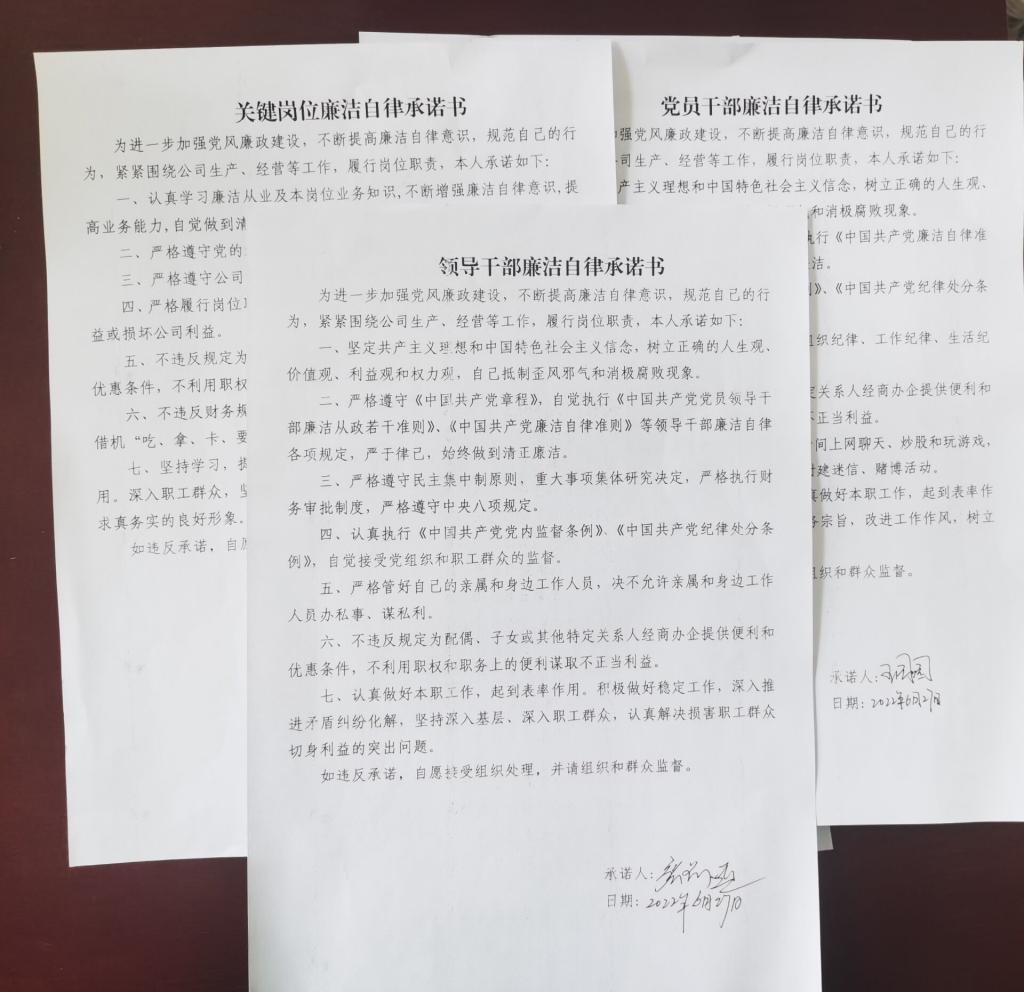 关键岗位廉洁自律承诺书
为进一步加强党风廉政建设，不断提高廉洁自律意识，规范自己的行
为，紧紧围绕公司生产、经营等工作，履行岗位职责，本人承诺如下：
一、认真学习廉洁从业及本岗位业务知识,不断增强廉洁自律意识,提
高业务能力,自觉做到清
二、严格遵守党的
三、严格遵守公司
四、严格履行岗位
益或损坏公司利益。
五、不违反规定为
优惠条件，不利用职权
六、不违反财务规
借机“吃、拿、卡、要
七、坚持学习，提
用。深入职工群众，坚
求真务实的良好形象。
如违反承诺，自愿
党员干部廉洁自律承诺书
强党风廉政建设，不断提高廉洁自律意识，规范自己的行
司生产、经营等工作，履行岗位职责，本人承诺如下：
产主义理想和中国特色社会主义信念，树立正确的人生观、
和消极腐败现象。
执行《中国共产党廉洁自律准
洁。
》、《中国共产党纪律处分条
组织纪律、工作纪律、生活纪
定关系人经商办企提供便利和
不正当利益。
间上网聊天、炒股和玩游戏，
封建迷信、赌博活动。
真做好本职工作，起到表率作
务宗旨，改进工作作风，树立
组织和群众监督。
承诺人：
日期：2022年6月27日
领导干部廉洁自律承诺书
为进一步加强党风廉政建设，不断提高廉洁自律意识，规范自己的行
为，紧紧围绕公司生产、经营等工作，履行岗位职责，本人承诺如下：
一、坚定共产主义理想和中国特色社会主义信念，树立正确的人生观、
价值观、利益观和权力观，自己抵制歪风邪气和消极腐败现象。
二、严格遵守《中国共产党章程》，自觉执行《中国共产党党员领导干
部廉洁从政若干准则》、《中国共产党廉洁自律准则》等领导干部廉洁自律
各项规定，严于律已，始终做到清正廉洁。
三、严格遵守民主集中制原则，重大事项集体研究决定，严格执行财
务审批制度，严格遵守中央八项规定。
四、认真执行《中国共产党党内监督条例》、《中国共产党纪律处分条
例》，自觉接受党组织和职工群众的监督。
五、严格管好自己的亲属和身边工作人员，决不允许亲属和身边工作
人员办私事、谋私利。
六、不违反规定为配偶、子女或其他特定关系人经商办企提供便利和
优惠条件，不利用职权和职务上的便利谋取不正当利益。
七、认真做好本职工作，起到表率作用。积极做好稳定工作，深入推
进矛盾纠纷化解，坚持深入基层、深入职工群众，认真解决损害职工群众
切身利益的突出问题。
如违反承诺，自愿接受组织处理，并请组织和群众监督。
承诺人：
日期：2022年6月27日